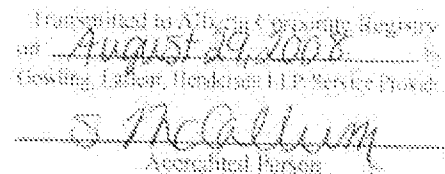 Transmitted to Alberta Corporate Registry
on August 29, 2008 by
Gowling, Lafleur, Henderson LLP Service Provider
S McCallum
Accredited Person